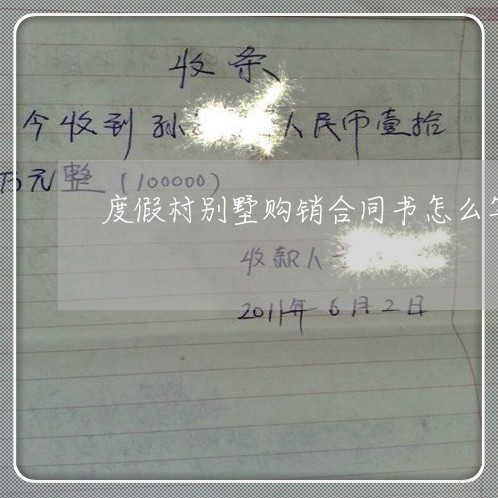 收条
今收到孙 人民币壹拾
万元整(100000)
度假村别墅购销合同书怎么
收款人
2011年6月2日